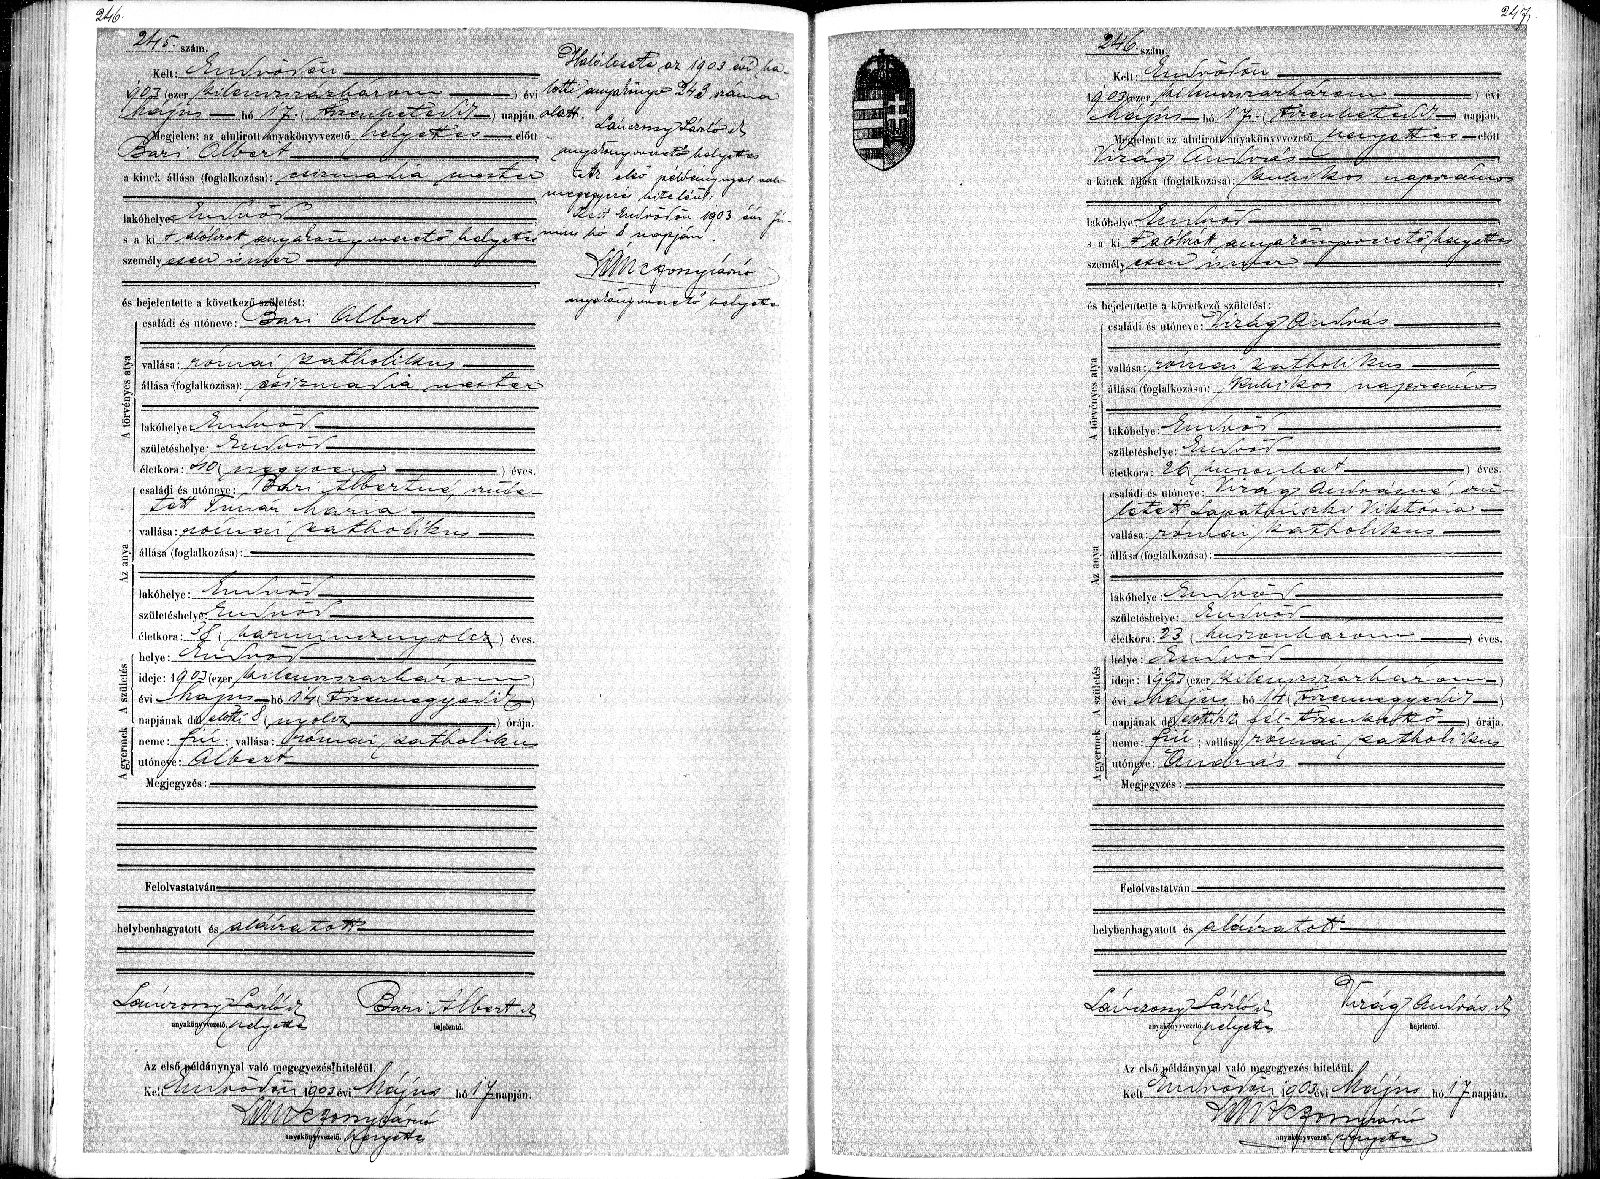 246.
245. szám.
Kelt: Endrődön
1903 (ezer kilenczszázhárom) évi
Május hó 17. (tizenhetedik) napján.
Megjelent az alulirott anyakönyvvezető helyettes előtt
Bari Albert
a kinek állása (foglalkozása): csizmadia mester
lakóhelye Endrőd
s a ki t alólirot anyakönyvvezető helyettes
személyesen ismer
és bejelentette a következő születést:
A törvényes atya
családi és utóneve: Bari Albert
vallása: római katholikus
állása (foglalkozása): csizmadia mester
lakóhelye: Endrőd
születéshelye: Endrőd
életkora: 40 (negyven) éves.
Az anya
családi és utóneve: Bari Albertné, szüle-
tett Timar Mária
vallása: római katholikus
állása (foglalkozása):
lakóhelye: Endrőd
születéshelye: Endrőd
életkora: 38 (harmincznyolcz) éves.
A gyermek A születés
helye: Endrőd
ideje: 1903 (ezer kilenczszázhárom)
évi Május hó 14 (tizennegyedik)
napjának délelőtti 8 (nyolcz) órája.
neme: fiú; vallása: római katholikus
utóneve: Albert
Megjegyzés:
Felolvastatván
helybenhagyatott és aláíratott
Lánczony László
anyakönyvvezető. helyettes
Bari Albert
bejelentő.
Az első példánynyal való megegyezés hiteléül.
Kelt Endrődön 1903 évi Május hó 17 napján.
Lánczony László
anyakönyvvezető. helyettes
Halálesete az 1903 évi ha-
lotti anyakönyv 243 száma
alatt.
Lánczony László
anyakönyvvezető helyettes
Az első példánynyal való
megegyezés hiteléül.
Kelt Endrődön 1903 évi Jú-
nius hó 8 napján.
Lánczony László
anyakönyvvezető helyettes
247.
246. szám.
Kelt: Endrődön
1903 (ezer kilenczszázhárom) évi
Május hó 17. (tizenhetedik) napján.
Megjelent az alulirott anyakönyvvezető helyettes előtt
Virág András
a kinek állása (foglalkozása): kubikos napszámos
lakóhelye Endrőd
s a ki t alólirot anyakönyvvezető helyettes
személyesen ismer
és bejelentette a következő születést:
A törvényes atya
családi és utóneve: Virág András
vallása: római katholikus
állása (foglalkozása): kubikos napszámos
lakóhelye: Endrőd
születéshelye: Endrőd
életkora: 26 (huszonhat) éves.
Az anya
családi és utóneve: Virág Andrásné, szü-
letett Lapatinszki Viktoria
vallása: római katholikus
állása (foglalkozása):
lakóhelye: Endrőd
születéshelye: Endrőd
életkora: 23 (huszonhárom) éves.
A gyermek A születés
helye: Endrőd
ideje: 1903 (ezer kilenczszázhárom)
évi Május hó 14 (tizennegyedik)
napjának délelőtti ½ fél tizenkettő) órája.
neme: fiú; vallása: római katholikus
utóneve: András
Megjegyzés:
Felolvastatván
helybenhagyatott és aláíratott
Lánczony László
anyakönyvvezető. helyettes
Virág András
bejelentő.
Az első példánynyal való megegyezés hiteléül.
Kelt Endrődön 1903 évi Május hó 17 napján.
Lánczony László
anyakönyvvezető. helyettes